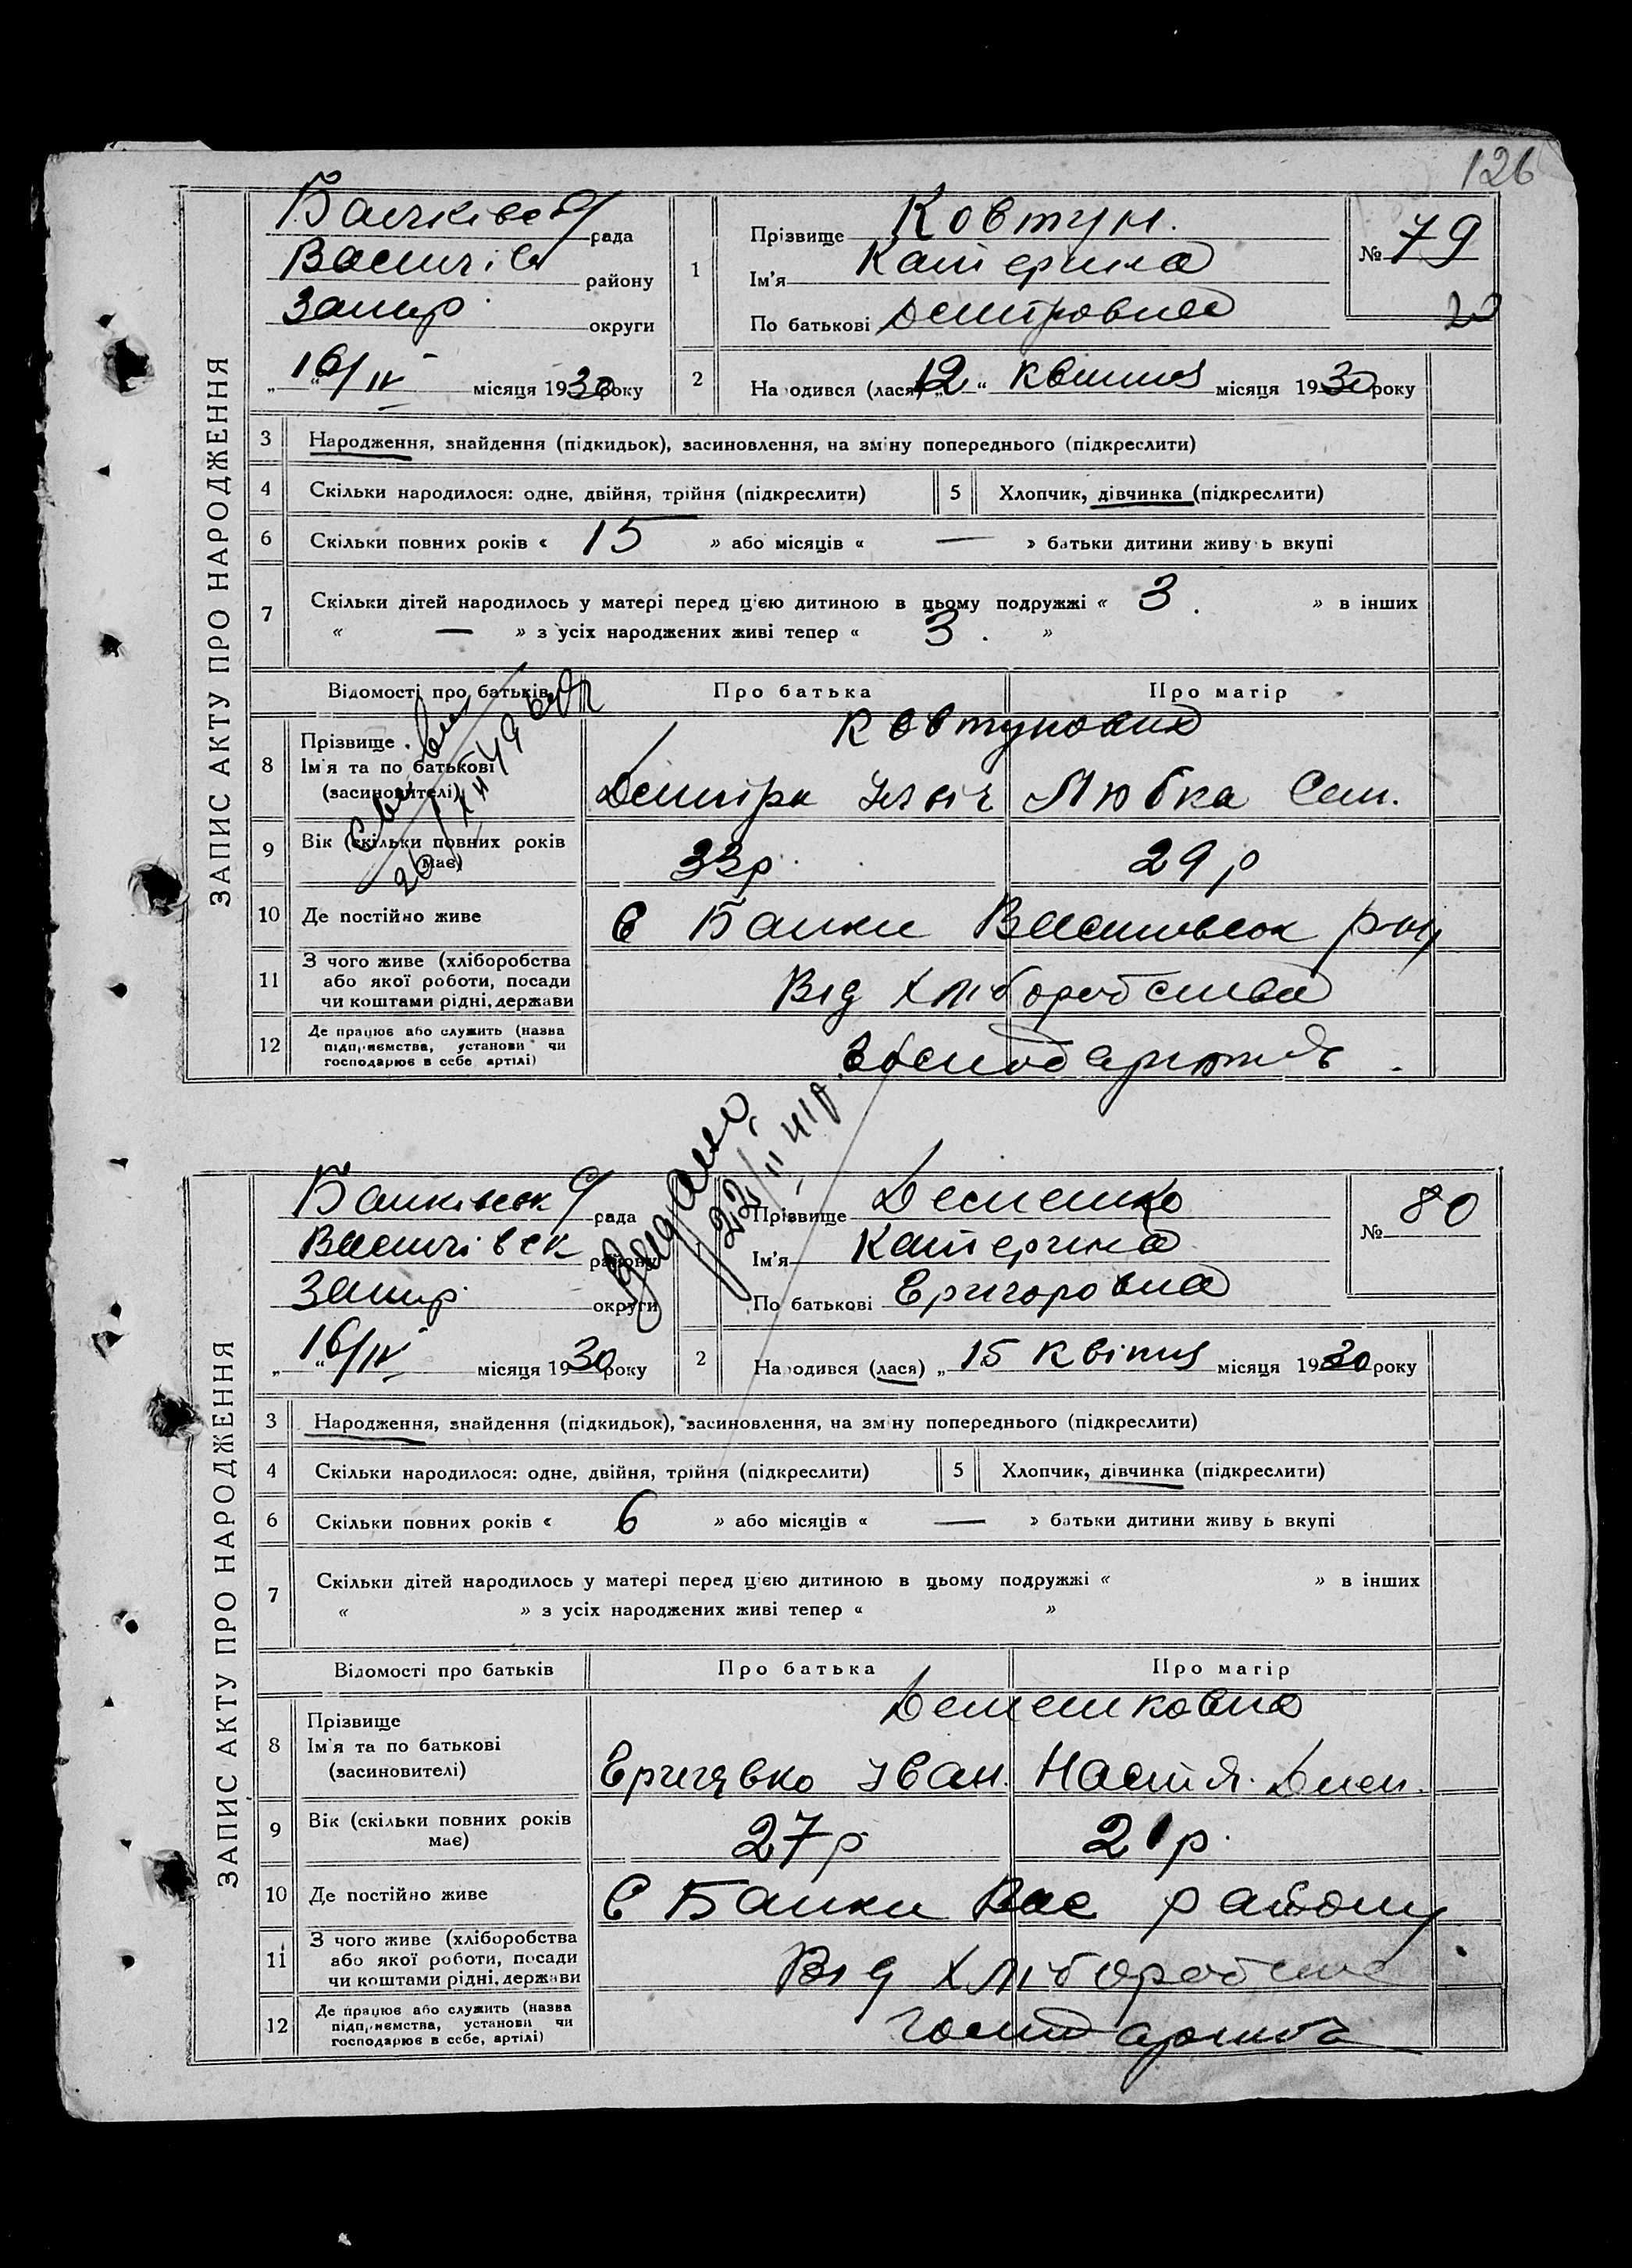 126
ЗАПИС АКТУ ПРО НАРОДЖЕННЯ
рада
району
Запир. округи
„ 16/IV “ місяця 1930 року
1
Прізвище Ковтун.
Ім'я Катерина
По батькові Дмитровна
№ 79
2
Народився (лася) „12“ квітня місяця 1930 року
3 Народження, знайдення (підкидьок), засиновлення, на зміну попереднього (підкреслити)
4 Скільки народилося: одне, двійня, трійня (підкреслити)
5 Хлопчик, дівчинка (підкреслити)
6 Скільки повних років « 15 » або місяців « — » батьки дитини живуть вкупі
7 Скільки дітей народилось у матері перед цією дитиною в цьому подружжі « 3 . » в інших
« — » з усіх народжених живі тепер « 3 . »
Відомості про батьків
Про батька
Про матір
8 Прізвище
Ім'я та по батькові
(засиновителі)
Ковтунови
Дмитро Ільіч
Любка Сем.
9 Вік (скільки повних років
має)
33р.
29р
10 Де постійно живе
С Балки Василівськ р-ну
11 З чого живе (хліборобства
або якої роботи, посади
чи коштами рідні, держави
Від хліборобства
12 Де працює або служить (назва
підприємства, установи чи
господарює в себе артілі)
Видано
22/II 41р.
ЗАПИС АКТУ ПРО НАРОДЖЕННЯ
Балківськ рада
Василівськ району
Запир. округи
„ 16/IV “ місяця 1930 року
Прізвище
Ім'я Катерина
По батькові
№ 80
2
Народився (лася) „ 15 квітня місяця 1930 року
3 Народження, знайдення (підкидьок), засиновлення, на зміну попереднього (підкреслити)
4 Скільки народилося: одне, двійня, трійня (підкреслити)
5 Хлопчик, дівчинка (підкреслити)
6 Скільки повних років « 6 » або місяців « — » батьки дитини живуть вкупі
7 Скільки дітей народилось у матері перед цією дитиною в цьому подружжі « » в інших
« » з усіх народжених живі тепер « »
Відомості про батьків
Про батька
Про матір
8 Прізвище
Ім'я та по батькові
(засиновителі)
Іван.
Настя
9 Вік (скільки повних років
має)
27р
21р.
10 Де постійно живе
С Балки Вас району
11 З чого живе (хліборобства
або якої роботи, посади
чи коштами рідні, держави
Від
12 Де працює або служить (назва
підприємства, установи чи
господарює в себе, артілі)